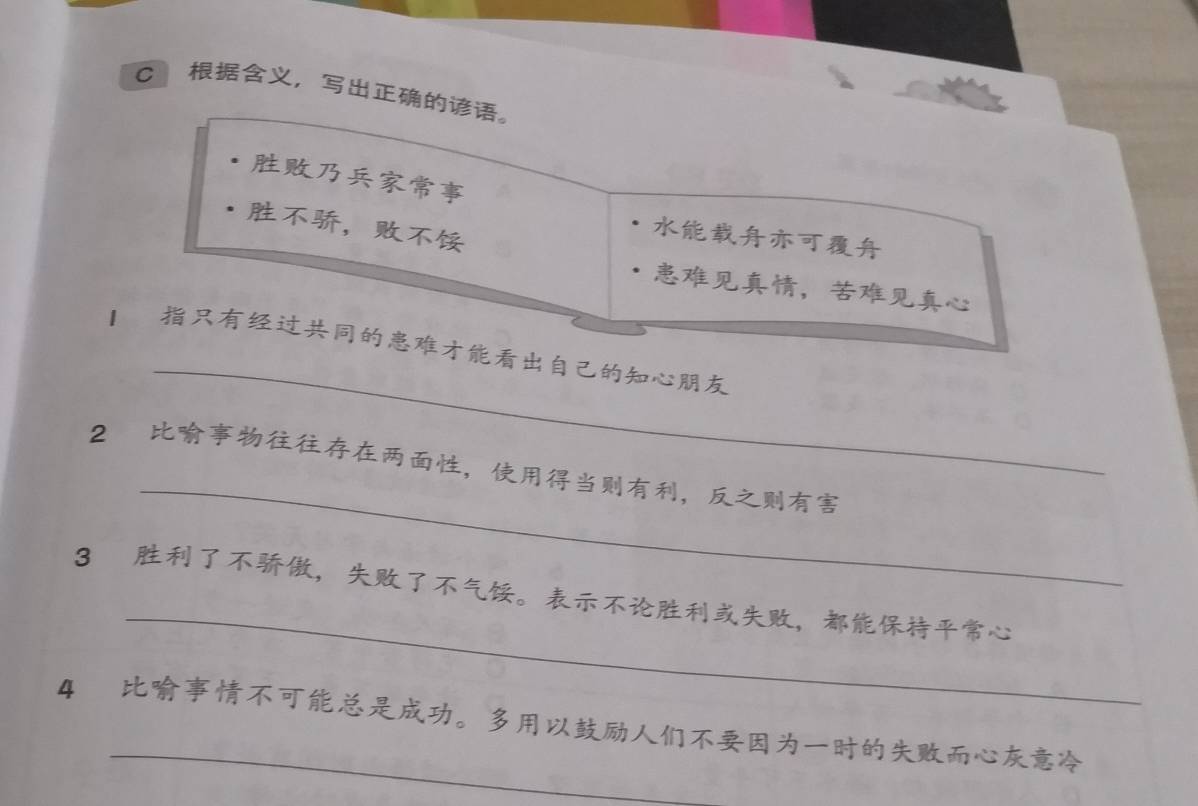 C 根据含义，写出正确的谚语。
• 胜败乃兵家常事
• 胜不骄，败不馁
• 水能载舟亦可覆舟
• 患难见真情，苦难见真心
1 指只有经过共同的患难才能看出自己的知心朋友
2 比喻事物往往存在两面性，使用得当则有利，反之则有害
3 胜利了不骄傲，失败了不气馁。表示不论胜利或失败，都能保持平常心
4 比喻事情不可能总是成功。多用以鼓励人们不要因为一时的失败而心灰意冷